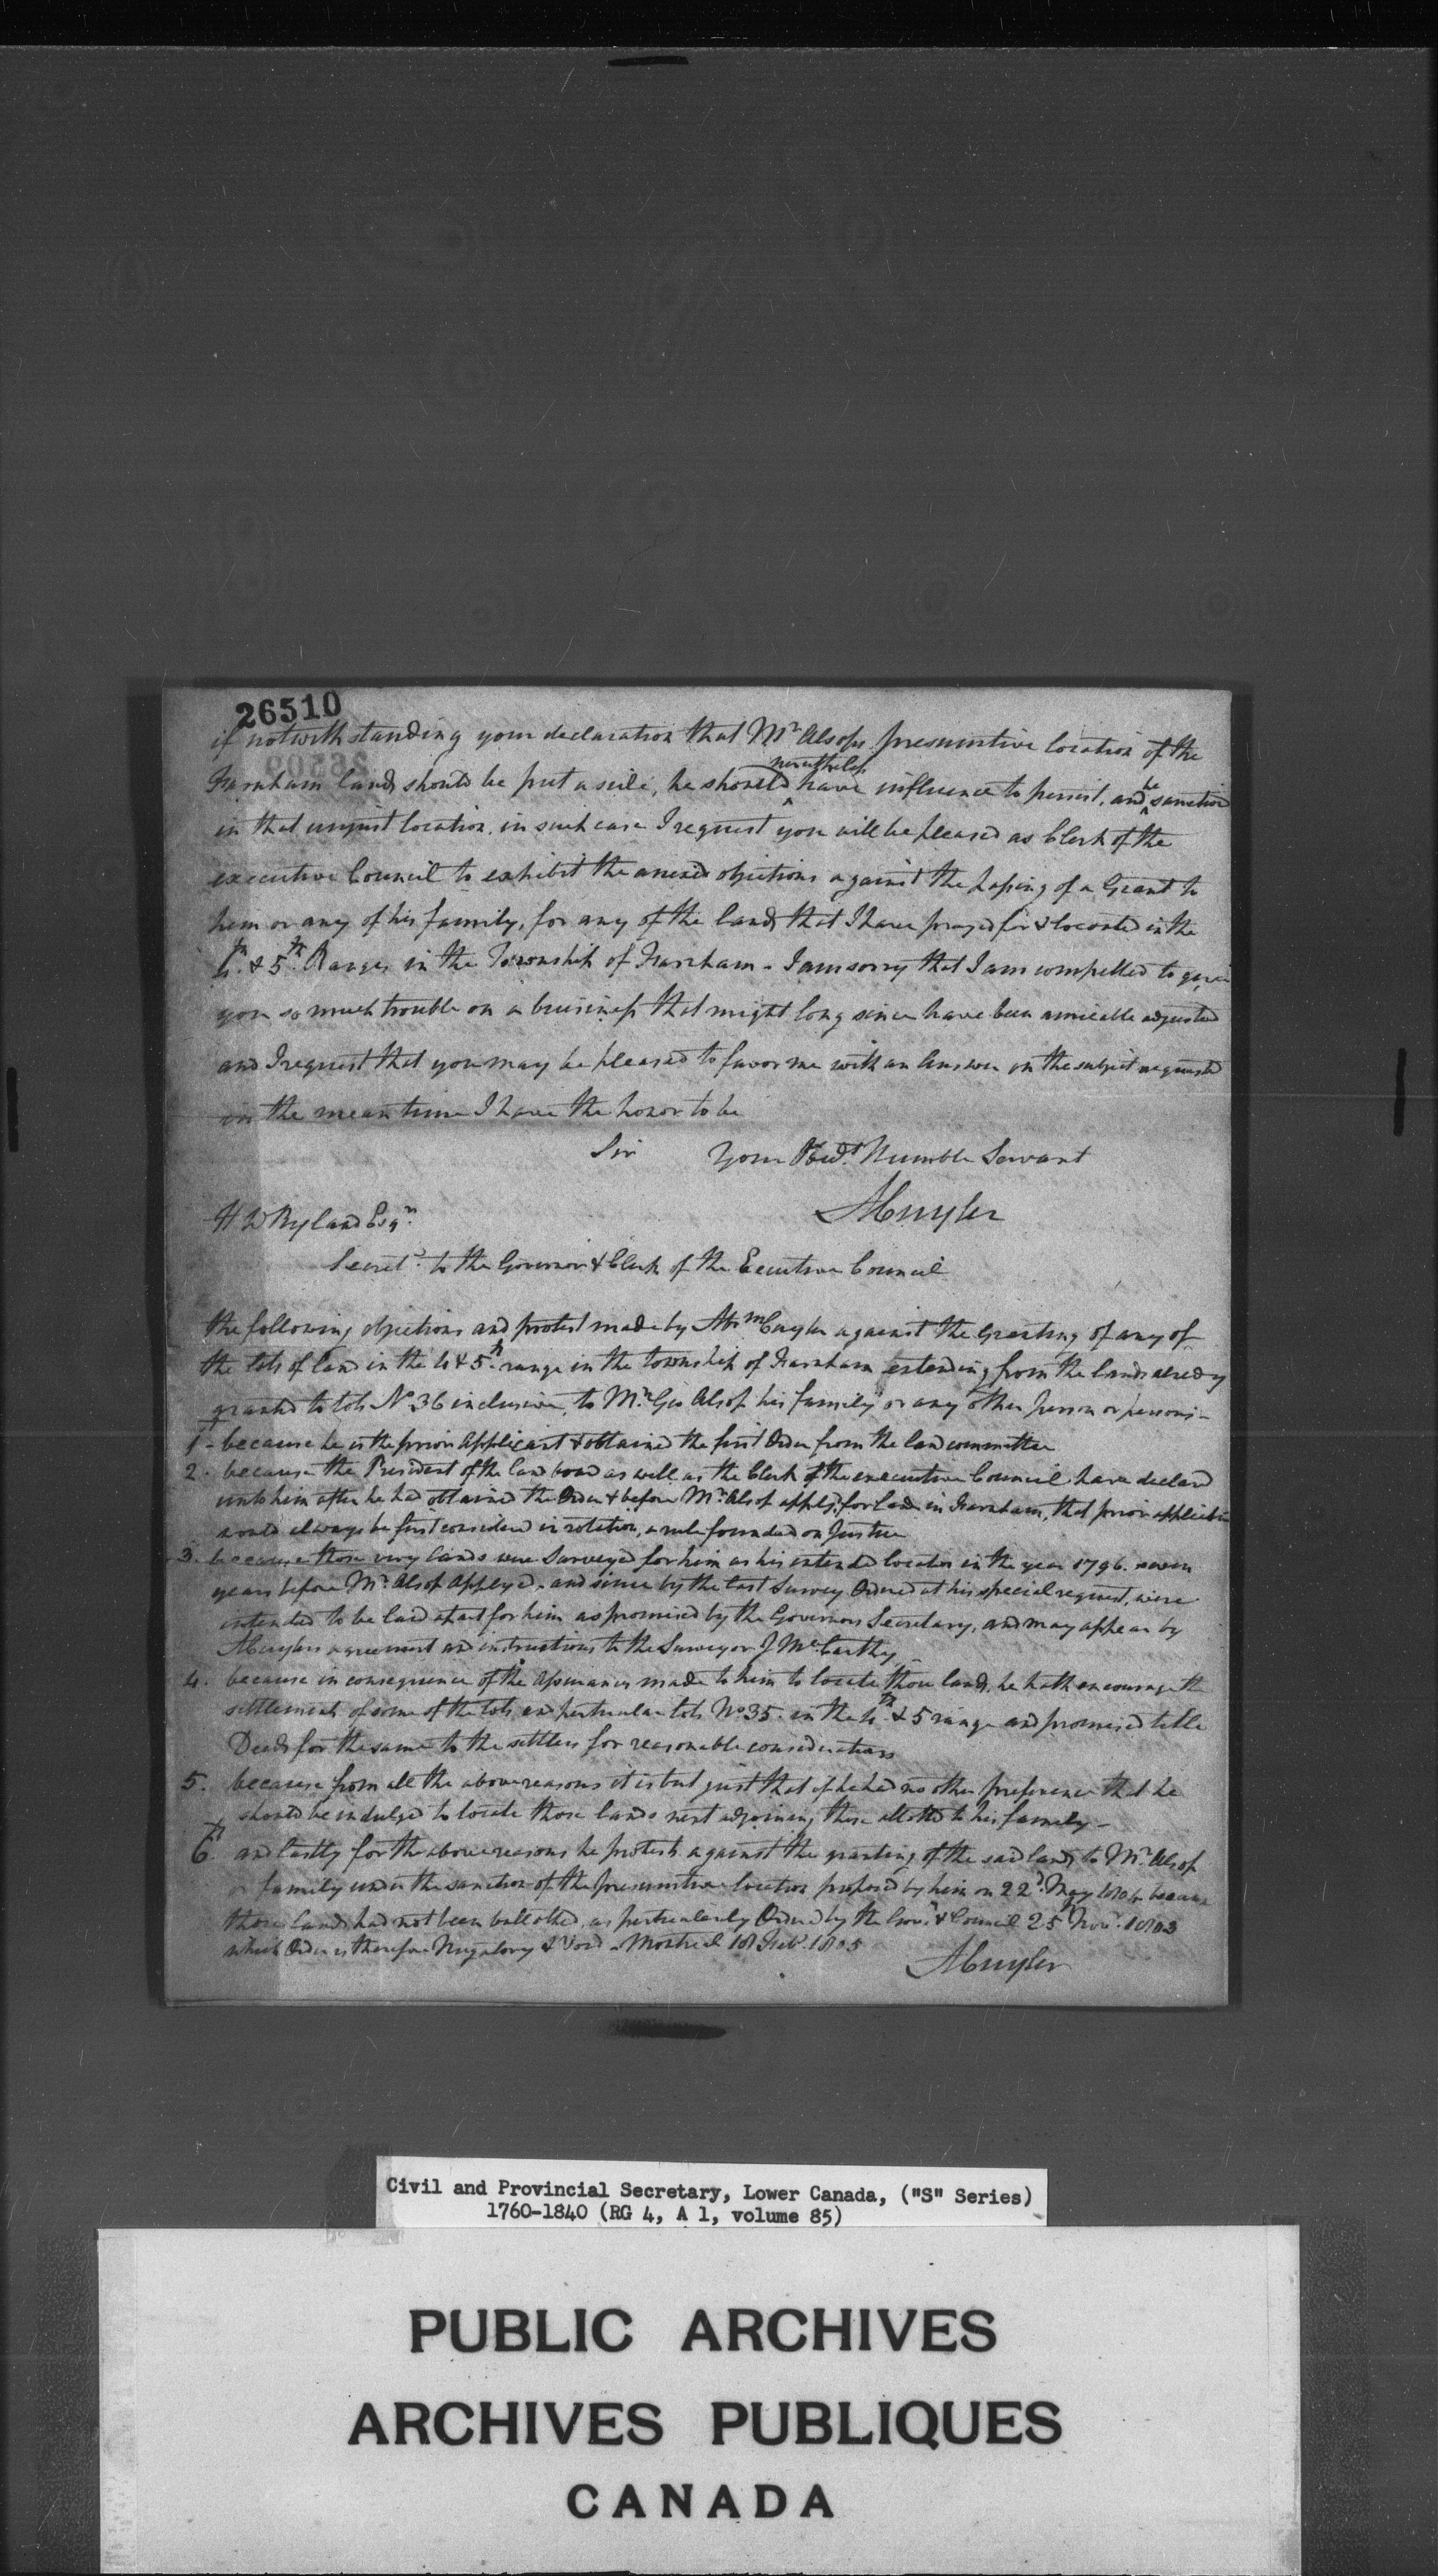 26510
if notwithstanding your declaration that Mr Alsops presumtive location of the
Farnham lands should be put aside, he should nevertheless have influence to persist, and be sanction
in that unjust location, in such case I request you will be pleased as Clerk of the
executive Council to exhibit the anexed objections against the passing of a Grant to
him or any of his family, for any of the lands that I have prayed for & located in the
4th & 5th Ranges in the Township of Farnham - I am sorry that I am compelled to give
you so much trouble on a business that might long since have been amicable adjusted
and I request that you may be pleased to favor me with an Answer on the subject requested
in the mean time I have the honor to be
Sir Your Obedt Humble Servant
ACuyler
H W Ryland Esqr
Secrety to the Governor & Clerk of the Executive Council
the following objections and protest made by Abm Cuyler against the Granting of any of
the lots of Land in the 4 & 5th range in the township of Farnham extending from the lands alredy
granted to lots No 36 inclusive, to Mr Geo Alsop his family or any other person or persons -
1 - because he is the prior Applicant & obtained the first Order from the land committee
2. because the President of the land board as well as the Clerk of the executive Council have declard
unto him after he had obtained the Order & before Mr Alsop applyd for Land in Farnham, that prior applicatin
would always be first considered in rotation, a rule founded on Justice
3. because those very lands were Surveyed for him as his intended location in the year 1796. seven
years before Mr Alsop Applyed, and since by the last Survey Ordered at his special request, were
intended to be laid apart for him as promised by the Governors Secretary, and may appear by
ACuylers agreement and instructions to the Surveyor J McCarthy -
4. because in consequence of the Assurances made to him to locate those lands, he hath encourage th
settlement of some of the lots, in perticular lots No 35. in the 4th & 5 range and promised title
Deeds for the same to the settlers for reasonable considerations
5. because from all the above reasons it is but just that if he had no other preference that he
should be indulged to locate those lands next adjoining those allotted to his family -
6th and lastly for the above reasons he protests against the granting of the said lands to Mr Alsop
or family under the sanction of the presumtive location proposed by him on 22d May 1804 because
those lands had not been ballotted, as perticularly Ordered by the Govr & Council 25th Novr 1803
which Order is therefore Nugatory & Void - Montreal 18 Feby 1805
ACuyler
Civil and Provincial Secretary, Lower Canada, ("S" Series)
1760-1840 (RG 4, A 1, volume 85)
PUBLIC ARCHIVES
ARCHIVES PUBLIQUES
CANADA